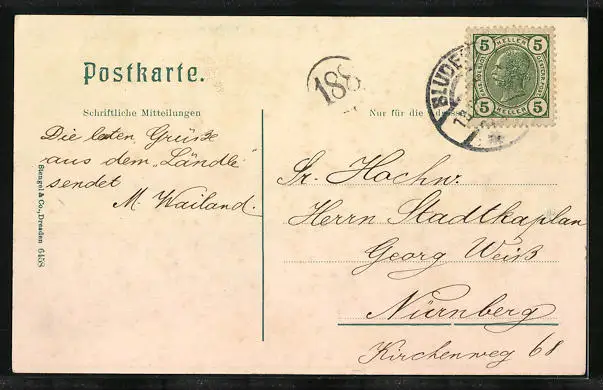 Postkarte.
188
5 HELLER 5
5 5
BLUDE
Schriftliche Mitteilungen
Nur für die Adresse
Die letzten Grüße
aus dem „Ländle"
sendet
M. Wailand.
Sr. Hochw.
Herrn Stadtkaplan
Georg Weiß
Nürnberg
Kirchenweg 68
Stengel & Co., Dresden 6458